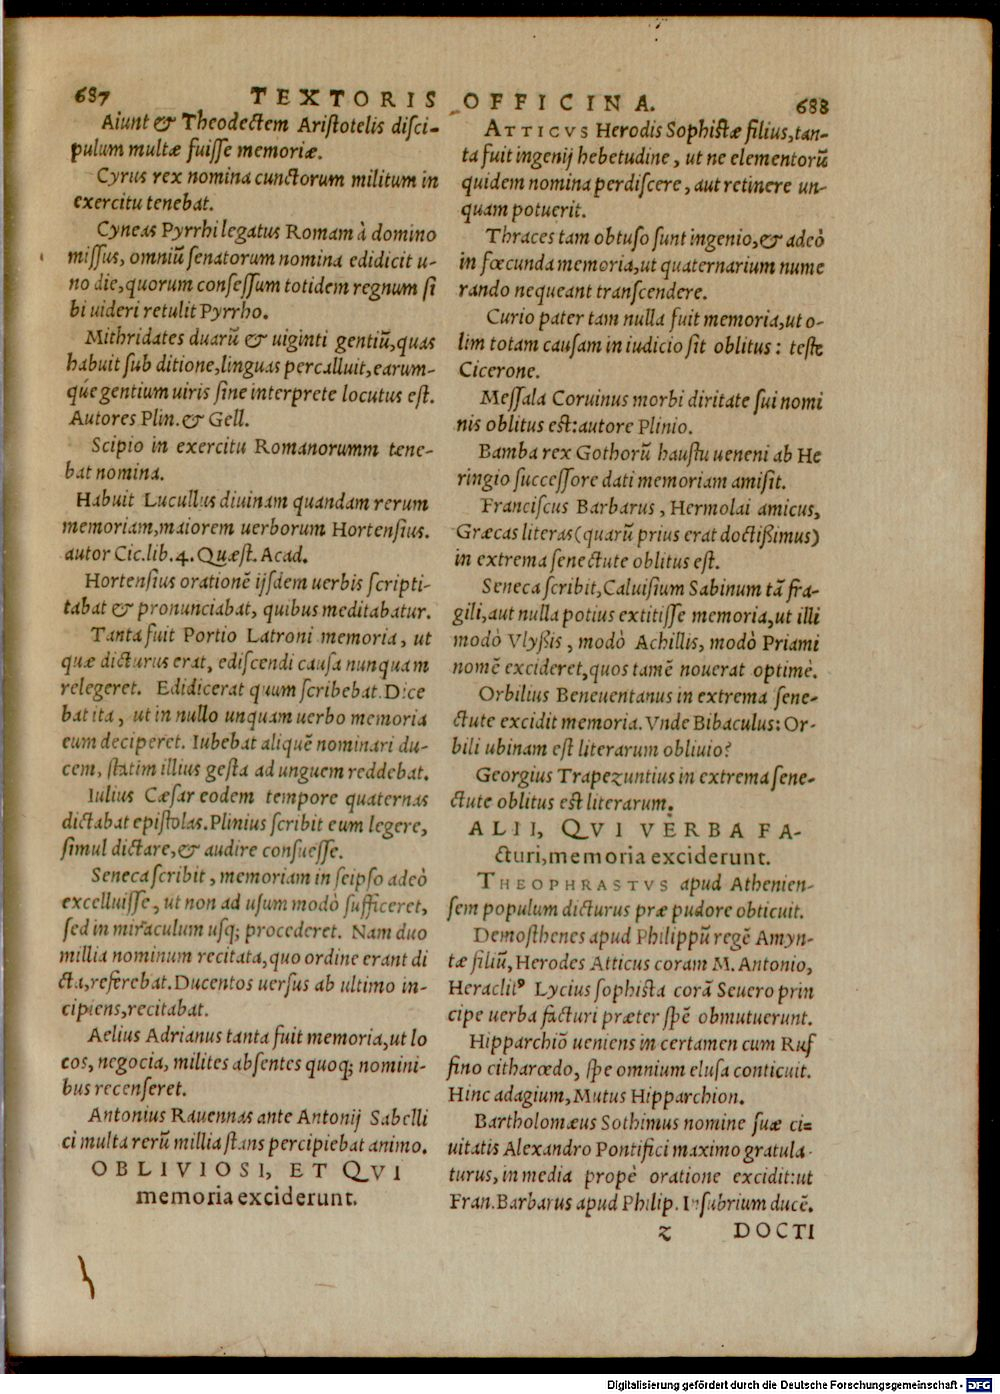 687 TEXTORIS OFFICINA. 688
Aiunt & Theodectem Aristotelis disci-
pulum multæ fuisse memoriæ.
Cyrus rex nomina cunctorum militum in
exercitu tenebat.
Cyneas Pyrrhi legatus Romam à domino
missus, omniũ senatorum nomina edidicit u-
no die, quorum consessum totidem regnum si
bi uideri retulit Pyrrho.
Mithridates duarũ & uiginti gentiũ, quas
habuit sub ditione, linguas percalluit, earum-
qúe gentium uiris sine interprete locutus est.
Autores Plin. & Gell.
Scipio in exercitu Romanorumm tene-
bat nomina.
Habuit Lucullus diuinam quandam rerum
memoriam, maiorem uerborum Hortensius.
autor Cic. lib. 4. Quæst. Acad.
Hortensius orationẽ ijsdem uerbis scripti-
tabat & pronunciabat, quibus meditabatur.
Tanta fuit Portio Latroni memoria, ut
quæ dicturus erat, ediscendi causa nunquam
relegeret. Edidicerat quum scribebat. Dice
bat ita, ut in nullo unquam uerbo memoria
eum deciperet. Iubebat aliquẽ nominari du-
cem, statim illius gesta ad unguem reddebat.
Iulius Cæsar eodem tempore quaternas
dictabat epistolas. Plinius scribit eum legere,
simul dictare, & audire consuesse.
Seneca scribit, memoriam in seipso adeò
excelluisse, ut non ad usum modò sufficeret,
sed in miraculum usq; procederet. Nam duo
millia nominum recitata, quo ordine erant di
cta, referebat. Ducentos uersus ab ultimo in-
cipiens, recitabat.
Aelius Adrianus tanta fuit memoria, ut lo
cos, negocia, milites absentes quoq; nomini-
bus recenseret.
Antonius Rauennas ante Antonij Sabelli
ci multa rerũ millia stans percipiebat animo.
OBLIVIOSI, ET QVI
memoria exciderunt.
ATTICVS Herodis Sophistæ filius, tan-
ta fuit ingenij hebetudine, ut ne elementorũ
quidem nomina perdiscere, aut retinere un-
quam potuerit.
Thraces tam obtuso sunt ingenio, & adeò
in fœcunda memoria, ut quaternarium nume
rando nequeant transcendere.
Curio pater tam nulla fuit memoria, ut o-
lim totam causam in iudicio sit oblitus: teste
Cicerone.
Messala Coruinus morbi diritate sui nomi
nis oblitus est: autore Plinio.
Bamba rex Gothorũ haustu ueneni ab He
ringio successore dati memoriam amisit.
Franciscus Barbarus, Hermolai amicus,
Græcas literas (quarũ prius erat doctißimus)
in extrema senectute oblitus est.
Seneca scribit, Caluisium Sabinum tã fra-
gili, aut nulla potius extitisse memoria, ut illi
modò Vlyßis, modò Achillis, modò Priami
nomẽ excideret, quos tamẽ nouerat optimè.
Orbilius Beneuentanus in extrema sene-
ctute excidit memoria. Vnde Bibaculus: Or-
bili ubinam est literarum obliuio?
Georgius Trapezuntius in extrema sene-
ctute oblitus est literarum.
ALII, QVI VERBA FA-
cturi, memoria exciderunt.
THEOPHRASTVS apud Athenien-
sem populum dicturus præ pudore obticuit.
Demosthenes apud Philippũ regẽ Amyn-
tæ filiũ, Herodes Atticus coram M. Antonio,
Heraclitꝰ Lycius sophista corã Seuero prin
cipe uerba facturi præter spẽ obmutuerunt.
Hipparchiõ ueniens in certamen cum Ruf
fino citharœdo, spe omnium elusa conticuit.
Hinc adagium, Mutus Hipparchion.
Bartholomæus Sothimus nomine suæ ci=
uitatis Alexandro Pontifici maximo gratula-
turus, in media propè oratione excidit: ut
Fran. Barbarus apud Philip. Insubrium ducẽ.
z DOCTI
Digitalisierung gefördert durch die Deutsche Forschungsgemeinschaft - DFG